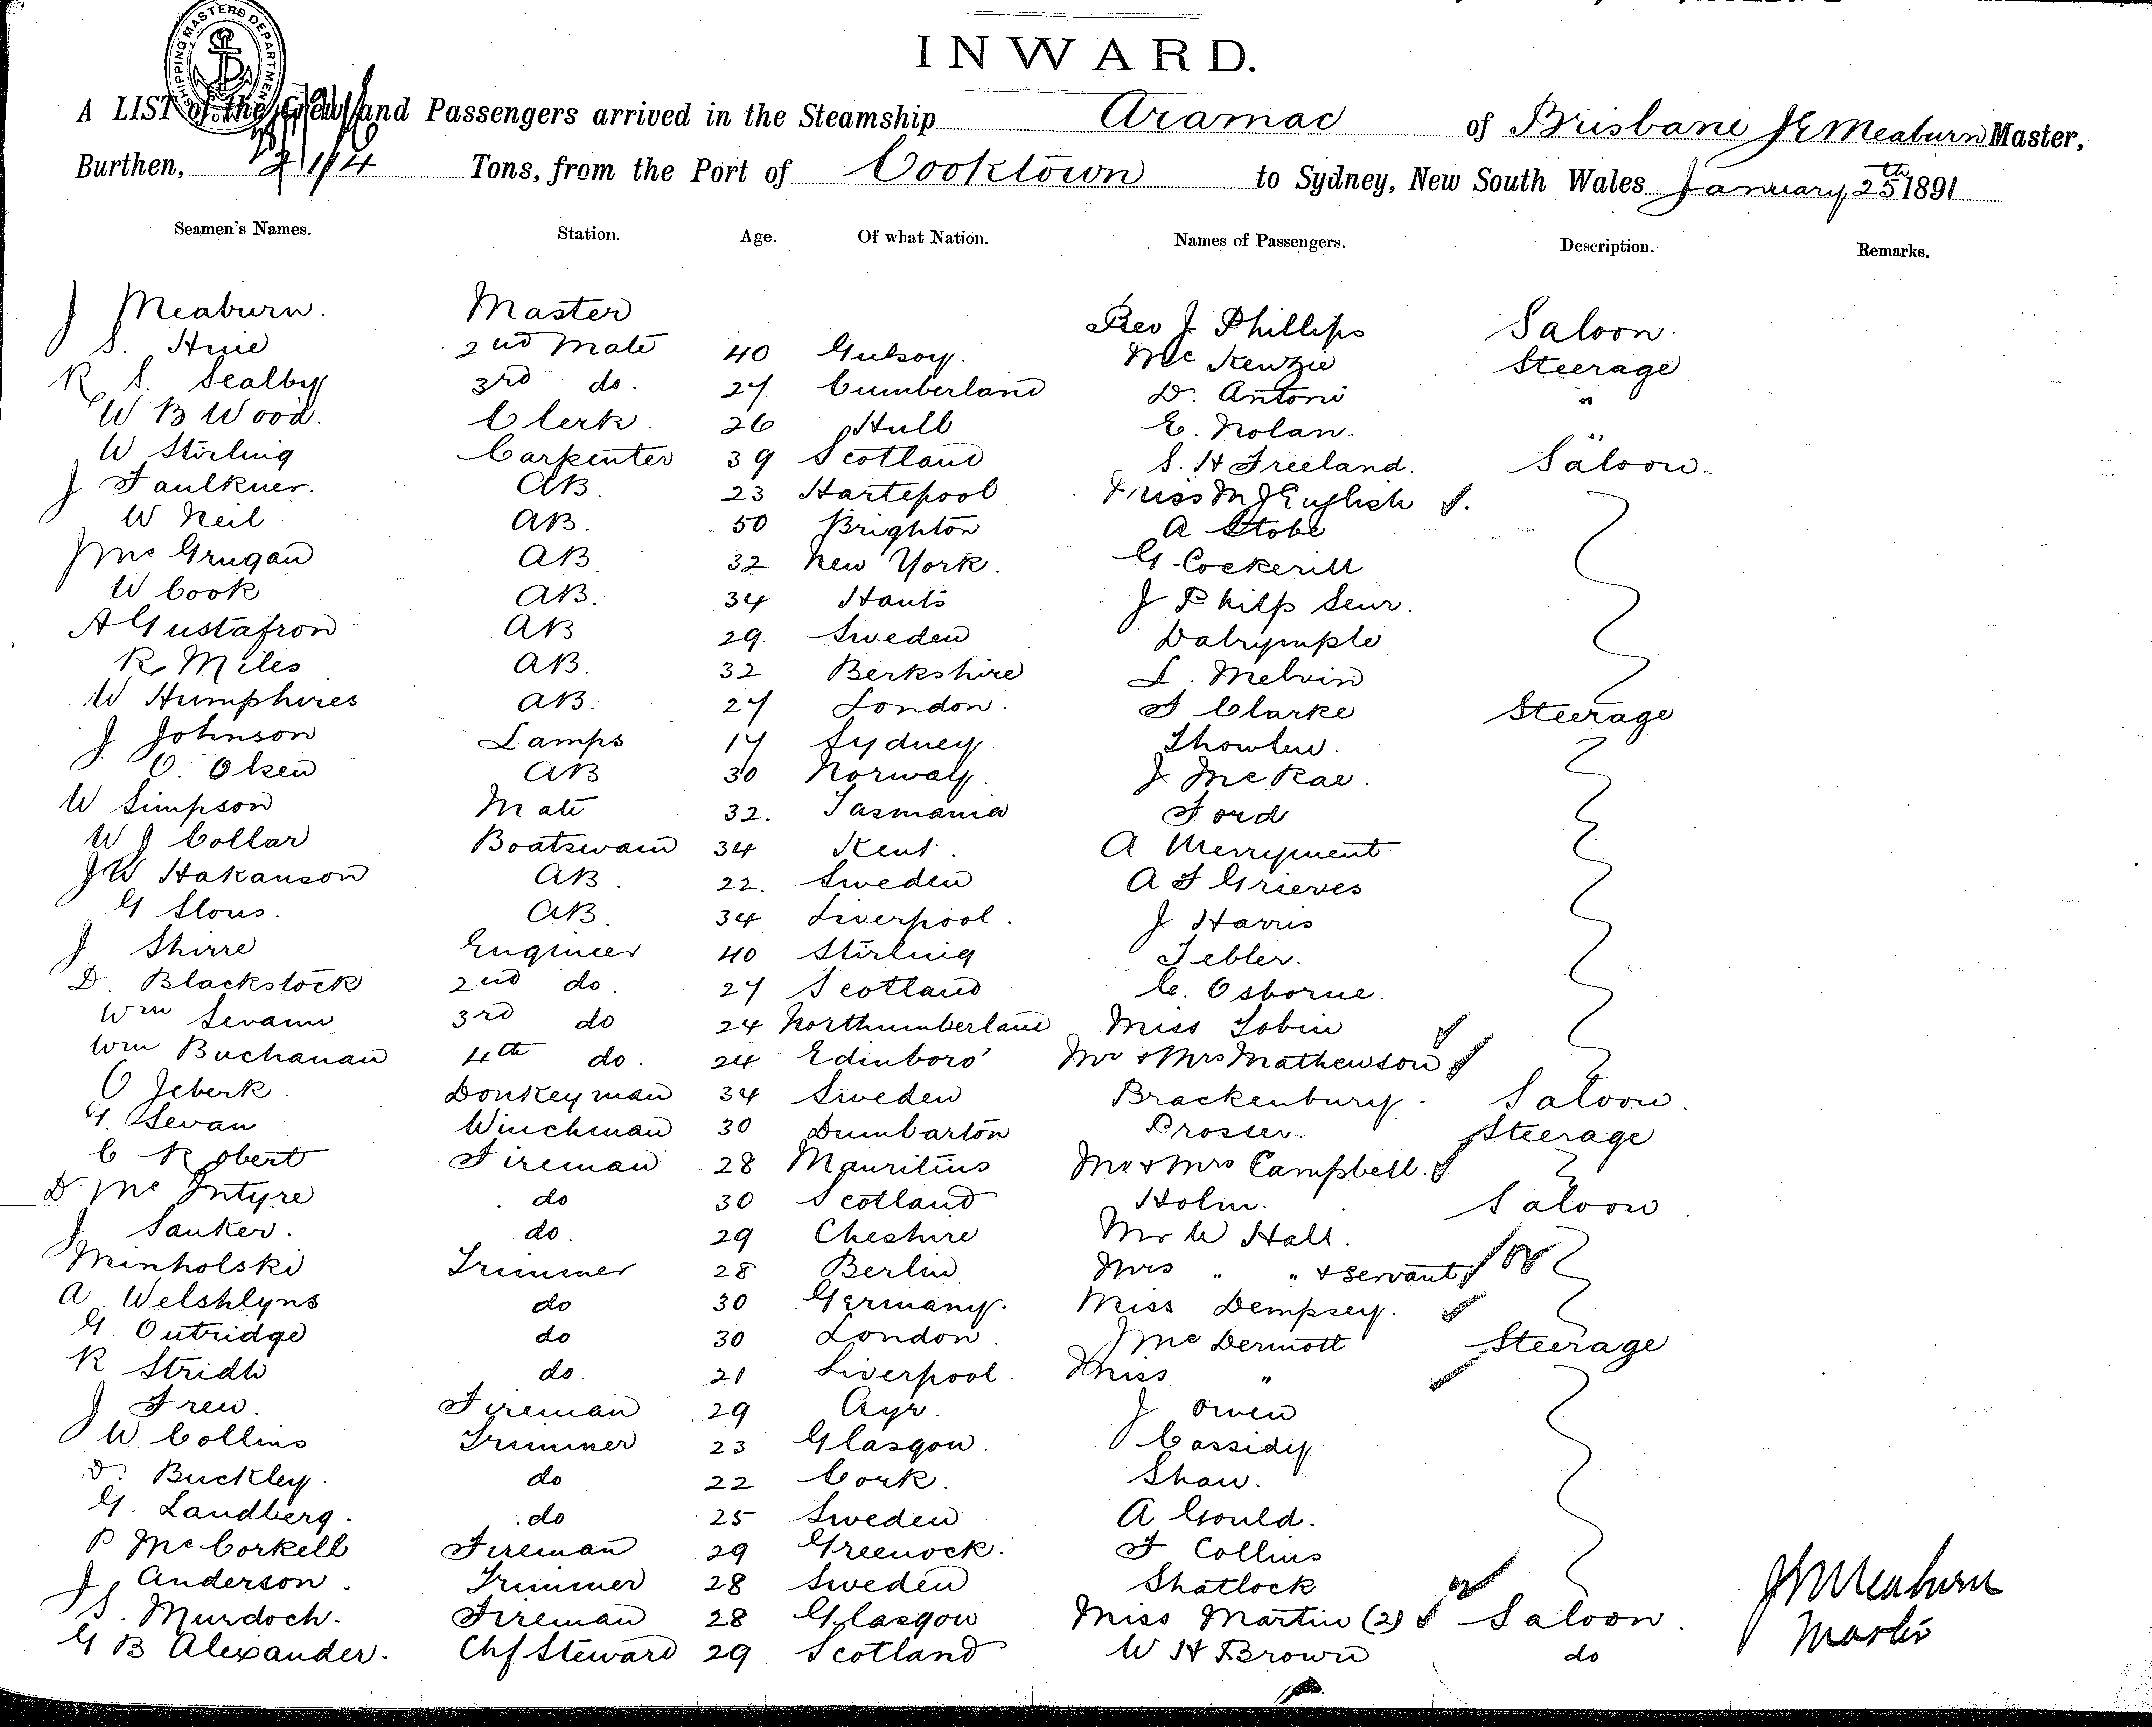 SHIPPING MASTERS DEPARTMENT
INWARD.
A LIST of the Crew and Passengers arrived in the Steamship Aramac of Brisbane Meaburn Master,
Burthen, Tons, from the Port of Cooktown to Sydney, New South Wales January 25th 1891
Seamen's Names. Station. Age. Of what Nation. Names of Passengers. Description. Remarks.
J Meaburn. Master Rev J Phillips Saloon.
S. Hine 2nd Mate 40 McKenzie Steerage
R S. Sealby 3rd do. 27 Cumberland D. Antoni "
W B Wood. Clerk 26 Hull E. Nolan. "
W Stirling Carpenter 39 Scotland S. H Freeland. Saloon.
J Faulkner. AB. 23 Hartepool Miss M J English
W Neil AB. 50 Brighton A Stobe
J McGrugan AB 32 New York. G Cockerill
W Cook AB. 34 Hants J Philp Senr.
A Gustafron AB 29. Sweden Dalrymple
R Miles AB. 32 Berkshire L. Melvin
W Humphires AB. 27 London. F Clarke Steerage
J Johnson Lamps 17 Sydney Showlen.
O. Olsen AB 30 Norway. J McRae.
W Simpson Mate 32. Tasmania Ford
W J Collar Boatswain 34 Kent. A Merryment
J W Hakanson AB. 22. Sweden A F Grieves
G Slous. AB. 34 Liverpool. J Harris
J Shirre Engineer 40 Stirling Tebler.
D. Blackstock 2nd do. 27 Scotland C. Osborne.
Wm Sevann 3rd do 24 Northumberland Miss Tobin
Wm Buchanan 4th do. 24 Edinboro' Mr & Mrs Mathewson
O Jeberk. Donkeyman 34 Sweden Brackenbury. Saloon.
G. Sevan Winchman 30 Dumbarton Prosser. Steerage
C Robert Fireman 28 Mauritius Mr & Mrs Campbell.
D McIntyre do 30 Scotland Holm. Saloon
J Sanker. do. 29 Cheshire Mr W Hall.
Minholski Trimmer 28 Berlin Mrs " " & servant
A Welshlyns do 30 Germany. Miss Dempsey.
G. Outridge do 30 London J McDermott Steerage
R Stridh do. 21 Liverpool. Miss "
J Frew. Fireman 29 Ayr. J Owen
W Collins Trimmer 23 Glasgow. Cassidy
D. Buckley. do 22 Cork. Shaw.
G. Landberg. do 25 Sweden A Gould.
P McCorkell Fireman 29 Greenock. F Collins
J Anderson. Trimmer 28 Sweden Shatlock
S. Murdoch. Fireman 28 Glasgow Miss Martin (2) Saloon. J Meaburn
G B Alexander. Chf Steward 29 Scotland W H Brown do Master